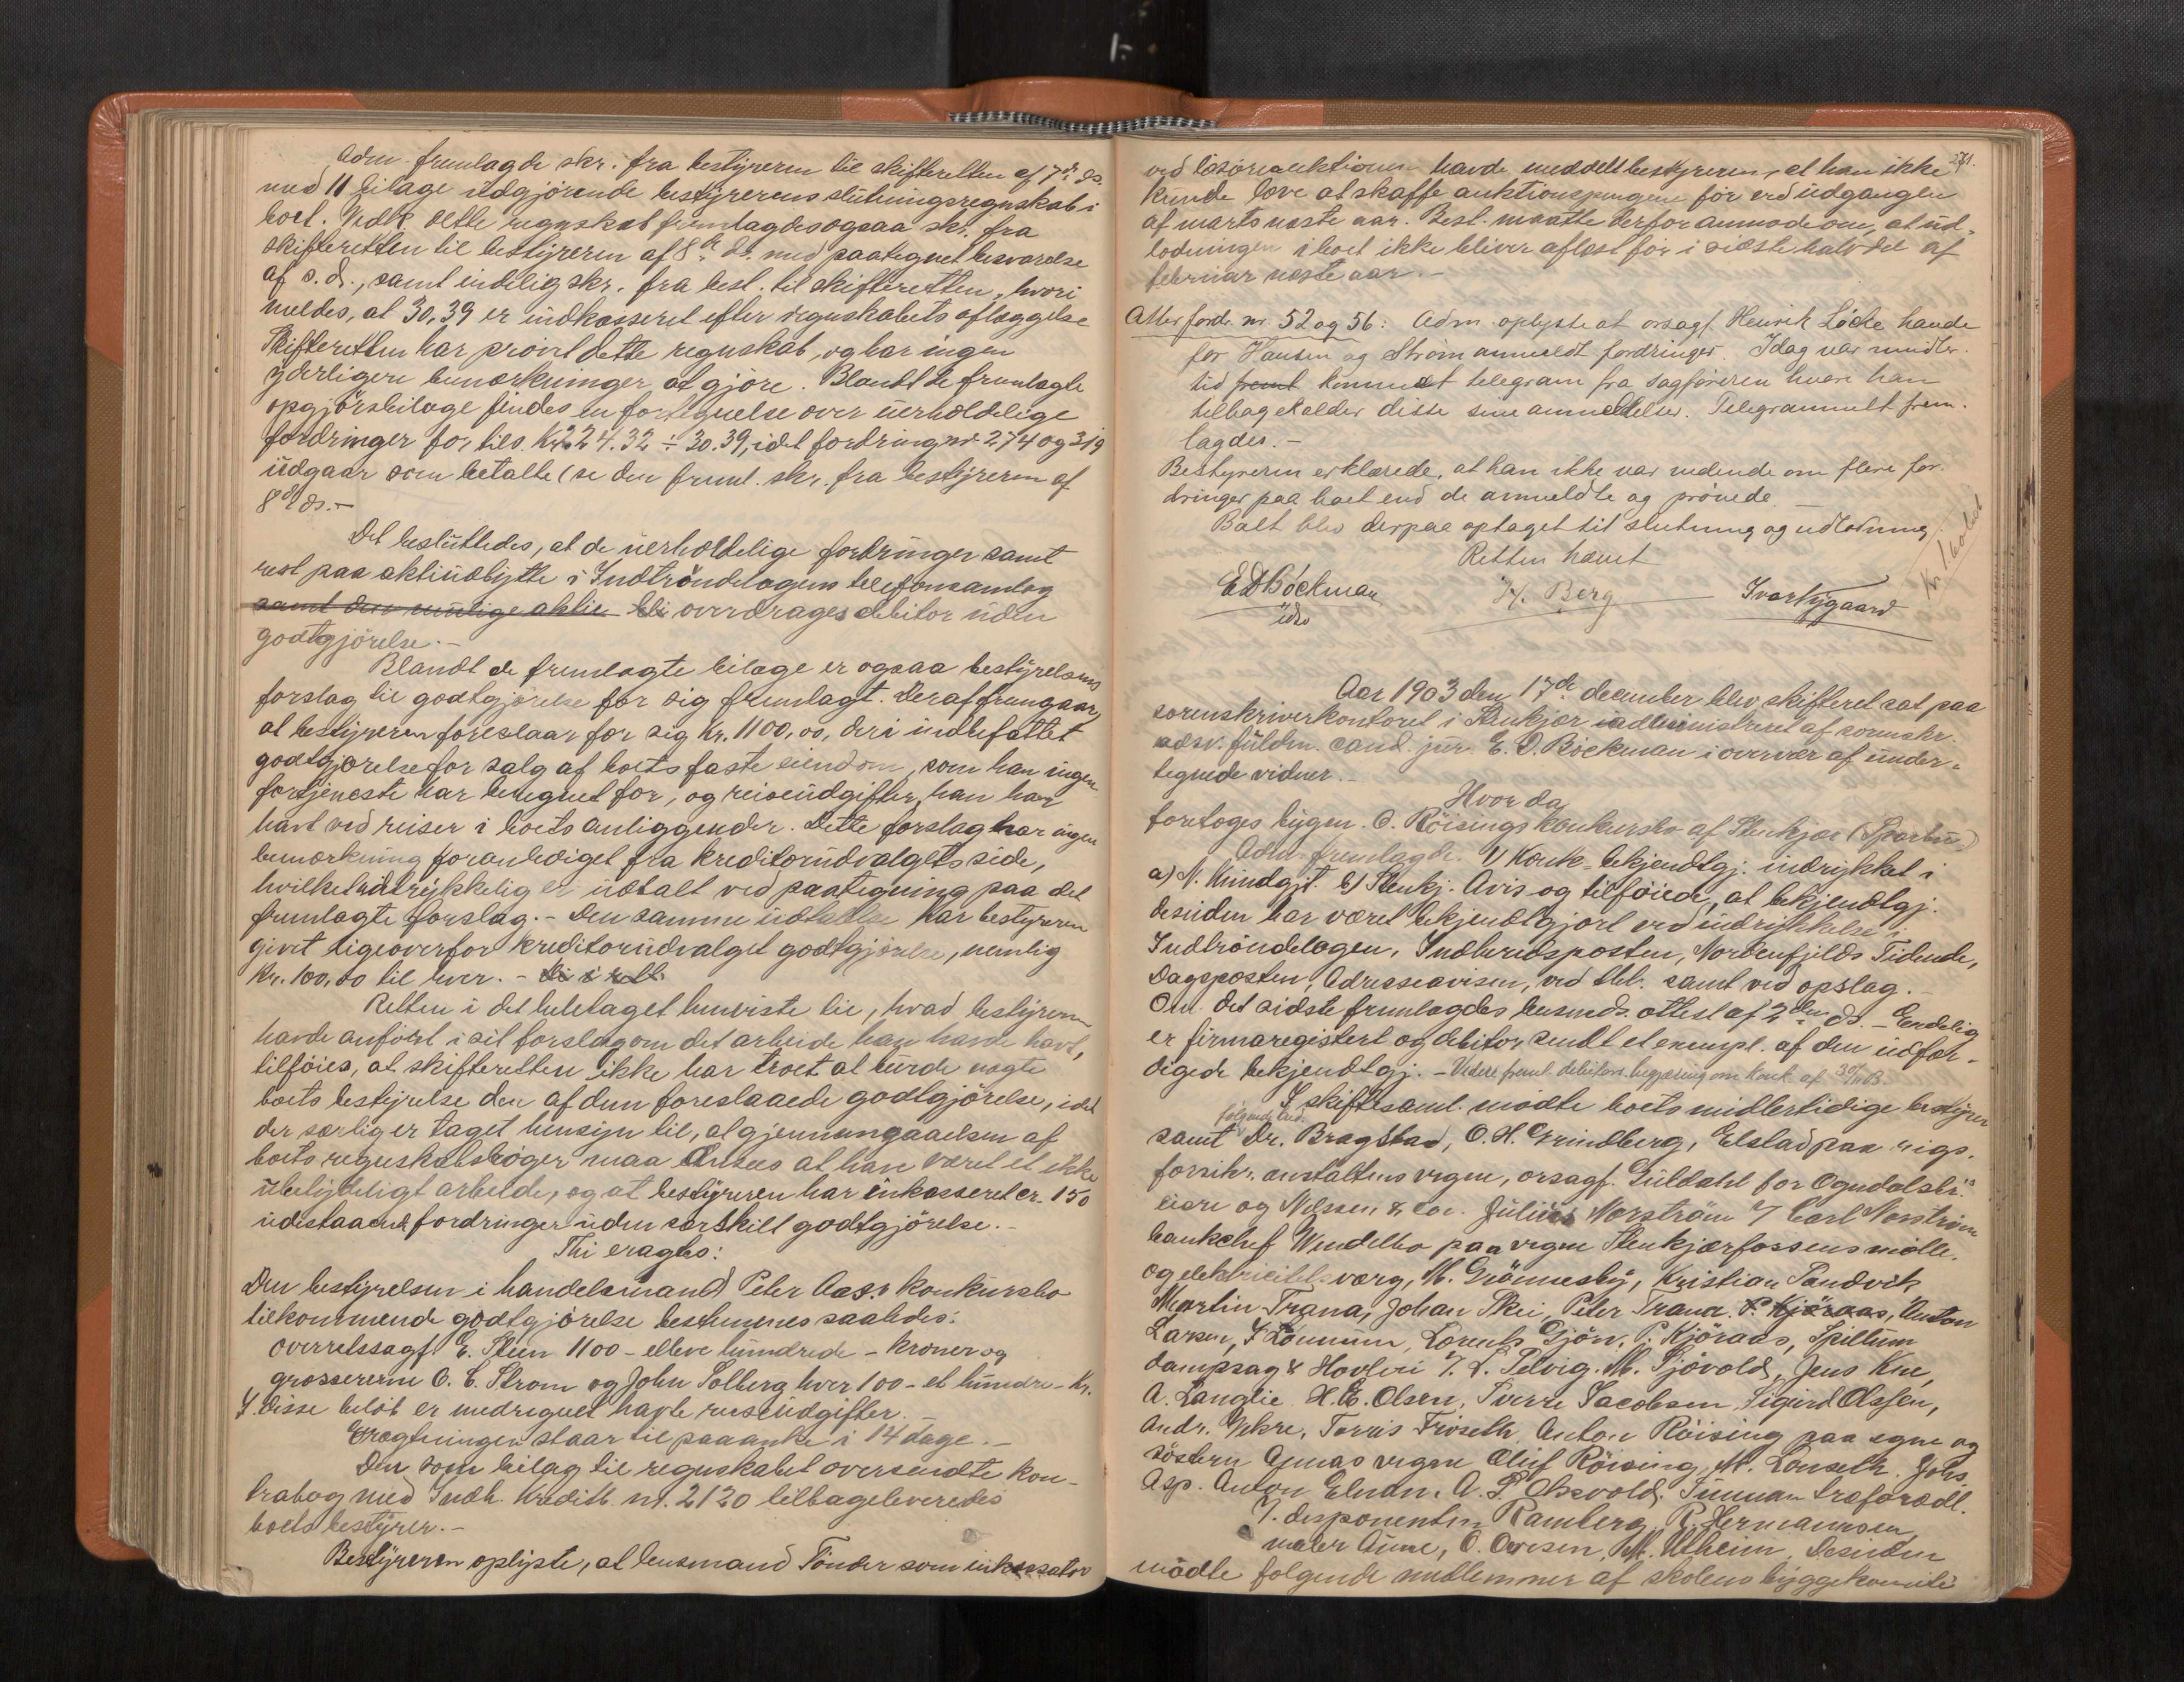 Adm. fremlagde skr. fra bestyreren til skifteretten af 7de ds.
med 11 bilage udgjørende bestyrerens slutningsregnskab i
boet. Vedk. dette regnskab fremlagdes ogsaa skr. fra
skifteretten til bestyreren af 8de ds. med paategnet besvarelse
af s. d., samt endelig skr. fra best. til skifteretten, hvori
meldes, at 30,39 er indkasseret efter regnskabets aflæggelse
Skifteretten har prøvet dette regnskab, og har ingen
yderligere bemærkninger at gjøre. Blandt de fremlagte
opgjørsbilage findes en fortegnelse over uerholdelige
fordringer for tils. Kr. 224.32 ÷ 30.39, idet fordring nr. 274 og 319
udgaar som betalte (se den freml. skr. fra bestyreren af
8de ds. -
Det besluttedes, at de uerholdelige fordringer samt
rest paa aktieudbytte i Indtrøndelagens telefonsamlag
samt den mulige aktie bli overdrages debitor uden
godtgjørelse. -
Blandt de fremlagte bilage er ogsaa bestyrelsens
forslag til godtgjørelse for sig fremlagt. Deraf fremgaar,
at bestyreren foreslaar for sig Kr. 1100,00, deri indbefattet
godtgjørelse for salg af boets faste eiendom, som han ingen
fortjeneste har beregnet for, og reiseudgifter, han har
havt ved reiser i boets anliggender. Dette forslag har ingen
bemærkning foranlediget fra kreditorudvalgets side,
hvilket udtrykkelig er udtalt ved paategning paa det
fremlagte forslag. - Den samme udtalelse har bestyreren
givet ligeoverfor kreditorudvalget godtgjørelse, nemlig
Kr. 100,00 til hver. -
Retten i det heletaget henviste til, hvad bestyreren
havde anført i sit forslag om det arbeide han havde havt,
tilføies, at skifteretten ikke har troet at burde nægte
boets bestyrelse den af dem foreslaaede godtgjørelse, idet
der særlig er taget hensyn til, at gjennemgaaelsen af
boets regnskabsbøger maa ansees at have været et ikke
ubetydeligt arbeide, og at bestyreren har inkasseret ca. 150
udestaaende fordringer uden særskilt godtgjørelse. -
Thi eragtes:
Den bestyrelsen i handelsmand Peter Aas's konkursbo
tilkommende godtgjørelse bestemmes saaledes:
Overretssagf. E. Stein 1100 - elleve hundrede - kroner og
grossererne O. C. Strøm og John Solberg hver 100 - et hundre - Kr.
I disse beløb er medregnet havte reiseudgifter. -
Eragtningen staar til paaanke i 14 dage. -
Den som bilag til regnskabet oversendte kon-
trabog med Indh. Kreditb. nr. 2120 tilbageleveredes
boets bestyrer. -
Bestyreren oplyste, at lensmand Tønder som inkassator
271.
ved løsøreauktionen havde meddelt bestyreren, at han ikke
kunde love at skaffe auktionspengene før ved udgangen
af marts næste aar. Best. maatte derfor anmode om, at ud-
lodningen i boet ikke bliver aflæst før i sidste halvdel af
februar næste aar. -
Atter ford. nr. 52 og 56: Adm. oplyste at orsagf. Henrik Løcke havde
for Hansen og Strøm anmeldt fordringer. Idag var imidler-
tid freml kommet telegram fra sagføreren hvore han
tilbagekalder disse sine anmeldelser. Telegrammet frem-
lagdes. -
Bestyreren erklærede, at han ikke var vidende om flere for-
dringer paa boet end de anmeldte og prøvede. -
Boet blev derpaa optaget til slutning og udlodning
Retten hævet
E D Bøckman H. Berg Ivar Nygaard
Aar 1903 den 17de december blev skifteret sat paa
sorenskriverkontoret i Stenkjær administreret af sorenskr.
edsv. fuldm. cand. jur. E. D. Bøckman i overvær af under-
tegnede vidner. -
Hvor da
foretoges bygm. O. Røisings konkursbo af Stenkjær (Sparbu)
Adm. fremlagde. 1) Konk. bekjendtgj. indrykket i
a) N. Kundgjt. b) Stenkj. Avis og tilføiede, at bekjendtgj.
desuden har været bekjendtgjort ved indrykkelse i
Indtrøndelagen, Indherredsposten, Nordenfjelds Tidende,
Dagsposten, Adresseavisen, ved samt ved opslag. -
Om det sidste fremlagdes lensmds. attest af 2den ds. - Endelig
er firmaregistert og debitor sendt et exempl. af den udfær-
digede bekjendtgj. - Videre freml. debitors begjæring om konk. af 30/11 03.
I skiftesaml. mødte boets midlertidige bestyrer
samt følgende kred. Dr. Bragstad, O. H. Grindberg, Elstad paa rigs-
forsikr. anstaltens vegne, orsagf. Guldahl for Ogndalsbr.
eiere og Nilssen & co. Julius Norstrøm f. Carl Norstrøm
bankchef Wendelbo paa vegne Stenkjærfossens mølle-
og elektricitetsværg, M. Grønnesby, Kristian Sandvik
Martin Trana, Johan Skei, Peter Trana. P. Kjøraas, Anton
Larsen, Lorents Gjørv, P. Kjøraas, Spillum
dampsag & Høvleri f. L. Selvig. M. Sjøvold, Jens Kne,
A. Langlie H. E. Olsen, Sverre Jacobsen, Sigurd Olssen,
Andr. Vekre, Torris Frøseth, Anton Røising paa egne og
søsteren Annas vegne Oluf Røising, M. Lønseth. Johs.
Asp. Anton Elnan. Trumman træforædl.
f. disponenten Ramberg, R. Hermannsen,
maler Aune, O. Ovesen, M. Utheim. Desuden
mødte følgende medlemmer af skolens byggekomite